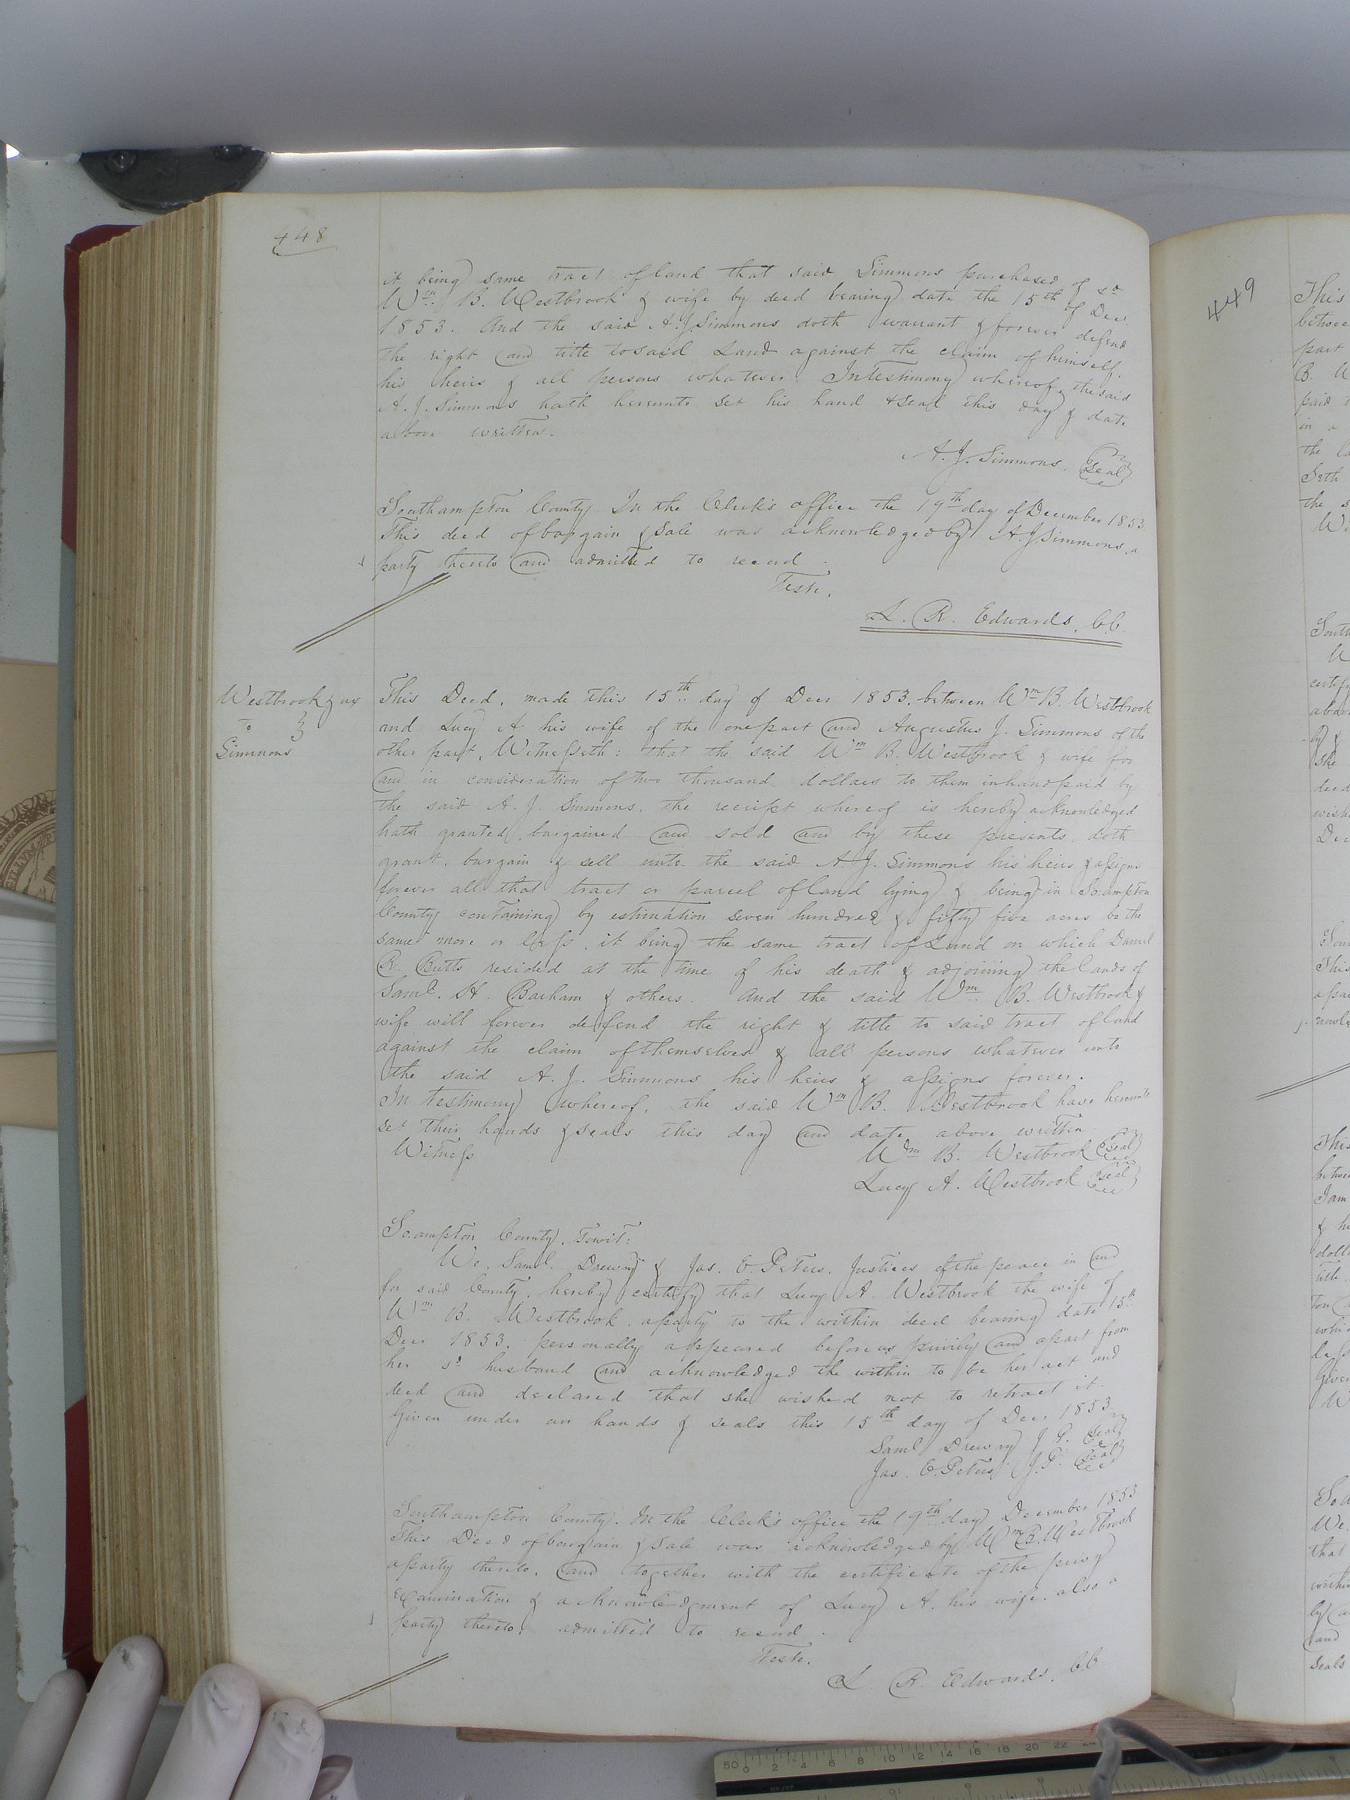 448
it being same tract of land that said Simmons purchased of sd
Wm. B. Westbrook & wife by deed bearing date the 15th of Decr
1853. And the said A. J. Simmons doth warrant & forever defend
the right and title to said Land against the claim of himself.
his heirs & all persons whatever. In testimony whereof, the said
A. J. Simmons hath hereunto set his hand & seal this day & date
above written.
A. J. Simmons. Seal
Southampton County In the Clerk's office the 19th day of December 1853
This deed of bargain & sale was acknowledged by A J Simmons, a
party thereto and admitted to record.
Teste,
L. R. Edwards, CC.
Westbrook & ux
to
Simmons
This Deed, made this 15th day of Decr 1853. between Wm B. Westbrook
and Lucy A his wife of the one part and Augustus J. Simmons of the
other part, Witnesseth: that the said Wm B. Westbrook & wife for
and in consideration of two thousand dollars to them in hand paid by
the said A. J. Simmons, the receipt whereof is hereby acknowledged
hath granted, bargained and sold and by these presents doth
grant, bargain & sell unto the said A. J. Simmons his heirs & assigns
forever all that tract or parcel of land lying & being in So.ampton
County containing by estimation seven hundred & fifty five acres be the
same more or less, it being the same tract of Land on which Daniel
R. Butts resided at the time of his death & adjoining the lands of
Saml. H. Barham & others. And the said Wm. B. Westbrook &
wife will forever defend the right & title to said tract of land
against the claim of themselves & all persons whatever unto
the said A. J. Simmons his heirs & assigns forever.
In testimony whereof, the said Wm B. Westbrook have hereunto
set their hands & seals this day and date above written
Witness
Wm B. Westbrook Seal
Lucy A. Westbrook Seal
So.ampton County, Towit:
We, Saml. Drewry & Jas. E. Peters, Justices of the peace in and
for said County, hereby certify that Lucy A. Westbrook the wife of
Wm B. Westbrook, a party to the within deed bearing date 15th
Decr 1853, personally appeared before us privily and apart from
her sd husband and acknowledged the within to be her act and
deed and declared that she wished not to retract it.
Given under our hands & seals this 15th day of Decr 1853
Saml Drewry J. P. Seal
Jas. E. Peters J. P. Seal
Southampton County. In the Clerk's office the 19th day December 1853
This Deed of bargain & sale was acknowledged by Wm B. Westbrook
a party thereto, and together with the certificate of the privy
Examination & acknowledgment of Lucy A. his wife, also a
party thereto, admitted to record.
Teste,
L. R. Edwards, CC
449
This
part
B. W
paid
in a
the
the s
This